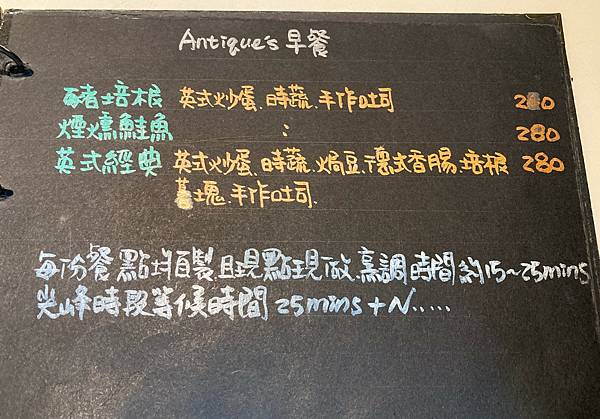 Antique's 早餐
豬培根 英式炒蛋、時蔬、手作吐司 280
煙燻鮭魚 : 280
英式經典 英式炒蛋、時蔬、焗豆、德式香腸、培根 280
薯塊、手作吐司
每份餐點均自製且現點現做,烹調時間約15~25mins
尖峰時段等候時間 25mins + N.....